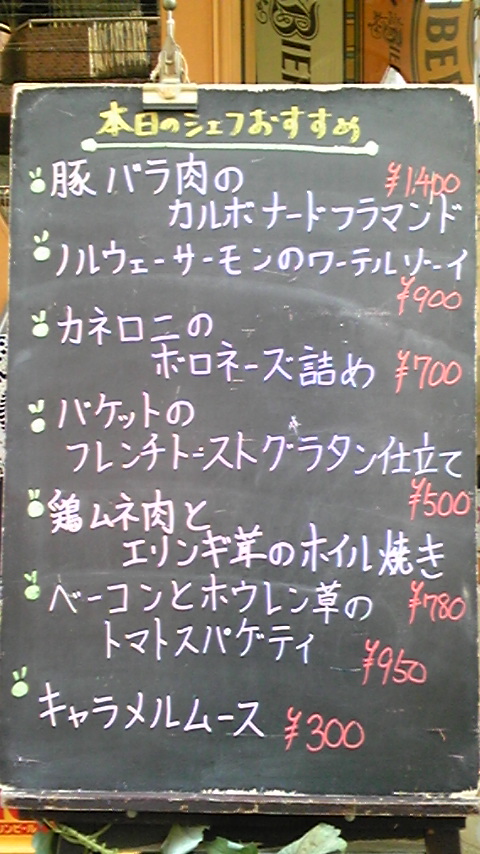 BIE
BE
本日のシェフおすすめ
豚バラ肉の ¥1,400
カルボナードフラマンド
ノルウェーサーモンのワーテルゾーイ
¥900
カネロニの
ボロネーズ詰め ¥700
バケットの
フレンチトーストグラタン仕立て
¥500
鶏ムネ肉と
エリンギ茸のホイル焼き
¥780
ベーコンとホウレン草の
トマトスパゲティ
¥950
キャラメルムース ¥300
リンビール